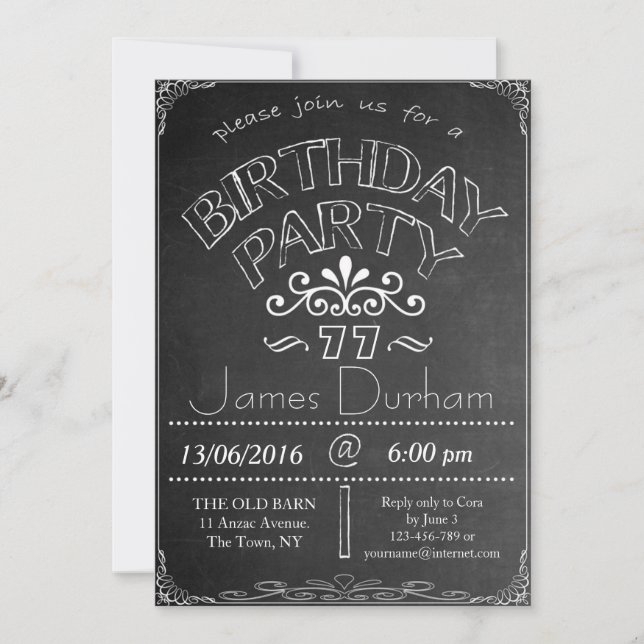 please join us for a
BIRTHDAY
PARTY
~ 77 ~
James Durham
13/06/2016 @ 6:00 pm
THE OLD BARN
11 Anzac Avenue.
The Town, NY
Reply only to Cora
by June 3
123-456-789 or
yourname@internet.com